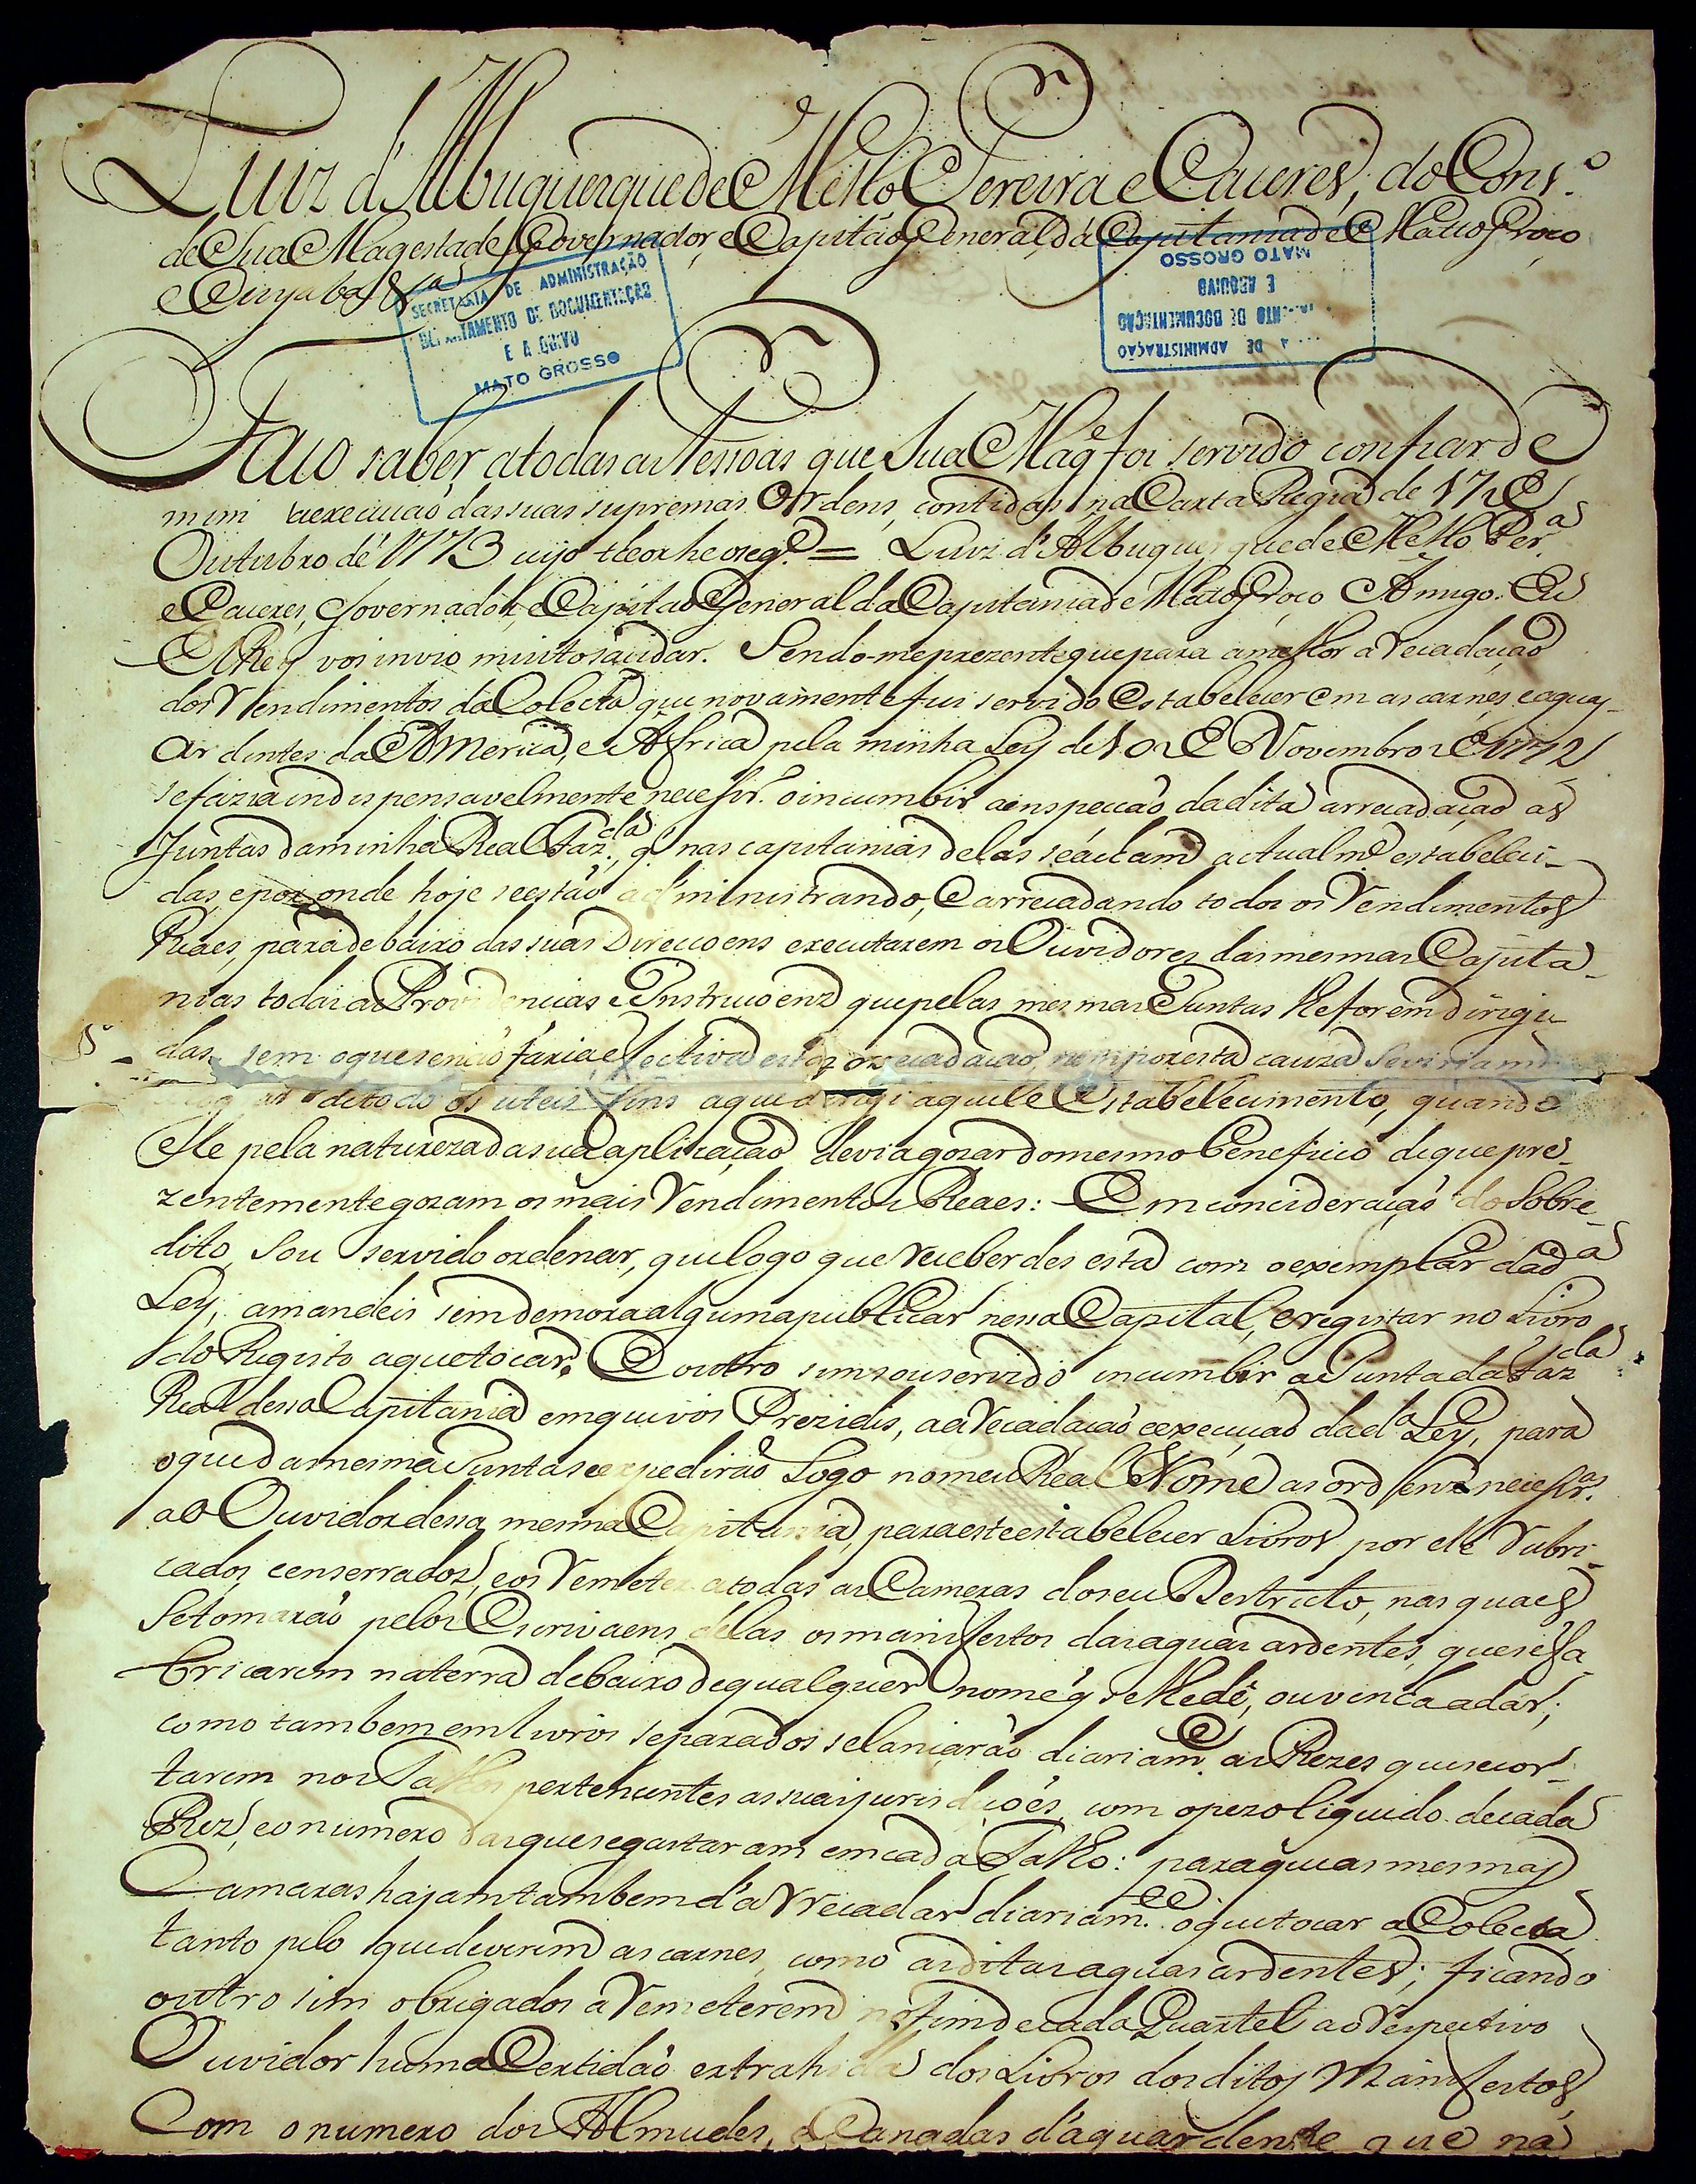 Luiz d'Albuquerque de Mello Pereira e Caceres, do Cons.º
de Sua Magestade Governador, e Capitão General da Capitania de Matto Groço
e Cuyaba &ª
SECRETARIA DE ADMINISTRAÇÃO
DEPARTAMENTO DE DOCUMENTAÇÃO
E ARQUIVO
MATO GROSSO
DE ADMINISTRAÇÃO
NTO DE DOCUMENTAÇÃO
E ARQUIVO
MATO GROSSO
Faço saber a todas as Pessoas que Sua Mag.e foi servido confiar de
mim a execução das suas supremas Ordens, contidas na Carta Regia de 17 de
Outubro de 1773 cujo theor he o seg.e = Luiz d'Albuquerque de Mello Per.a
e Caceres, Governador, e Capitão General da Capitania de Mato Groço Amigo. Eu
ElRey vos invio muito saudar. Sendo-me prezente que para a melhor arrecadação
dos Rendimentos da Colecta que novamente fui servido Estabelecer em as carnes, e aguas
ardentes da America, e Africa pela minha Ley de 10 de Novembro de 1772
se fazia indispensavelmente necesr.º o incumbir a inspecção da dita arrecadação as
Juntas da minha Real Faz.da, q' nas capitanias delas se áclam actualm.e estabeleci-
das, e por onde hoje se estão administrando, e arrecadando todos os Rendimentos
Reaes, para debaixo das suas Direccoens executarem os Ouvidores das mesmas Capita-
nias todas as Providencias e Instruçoens que pelas mesmas Juntas lhe forem dirigi-
das sem o que se não faria effectiva esta arrecadação, nem por esta cauza se viriam
de todo os uteis fins a que dirigi aquele Estabelecimento, quando
Elle pela natureza da sua aplicação devia gozar do mesmo beneficio de que pre-
zentemente gozam os mais Rendimentos Reaes: Em concideração do Sobre-
dito, Sou servido ordenar, que logo que receberdes esta com o exemplar da d.a
Ley, a mandeis sem demora alguma publicar nessa Capital, e registar no Livro
do Registo a que tocar. E outro sim sou servido incumbir a Junta da Faz.da
Real dessa Capitania em que vos Prezidis, a arrecadação e execução da d.a Ley, para
o que da mesma Junta se expedirão Logo no meu Real Nome as ordens necesr.as
ao Ouvidor dessa mesma Capitania, para este estabelecer Livros por ele rubri-
cados, e enserrados, e os Remeter a todas as Cameras do seu Destricto, nas quaes
se tomarão pelos Escrivaens delas os manifestos das aguas ardentes, que se fa-
bricarem na terra debaixo de qualquer nome q' se lhe dê, ou venha a dar;
como tambem em livros separados se lançarão diariam.e as Rezes que se cor-
tarem nos Talhos pertencentes as suas jurisdições, com o pezo liquido de cada
Rez, e o numero das que se gastaram em cada Talho: para que as mesmas
Camaras hajam tambem d'arrecadar diariam.e o que tocar a Colecta
tanto pelo que deverem as carnes, como as ditas aguas ardentes; ficando
outro sim obrigados a Remeterem no fim de cada Quartel ao respectivo
Ouvidor huma Certidão extrahida dos Livros dos ditos Manifestos,
Com o numero dos Almudes, e Canadas d'aguardente que na